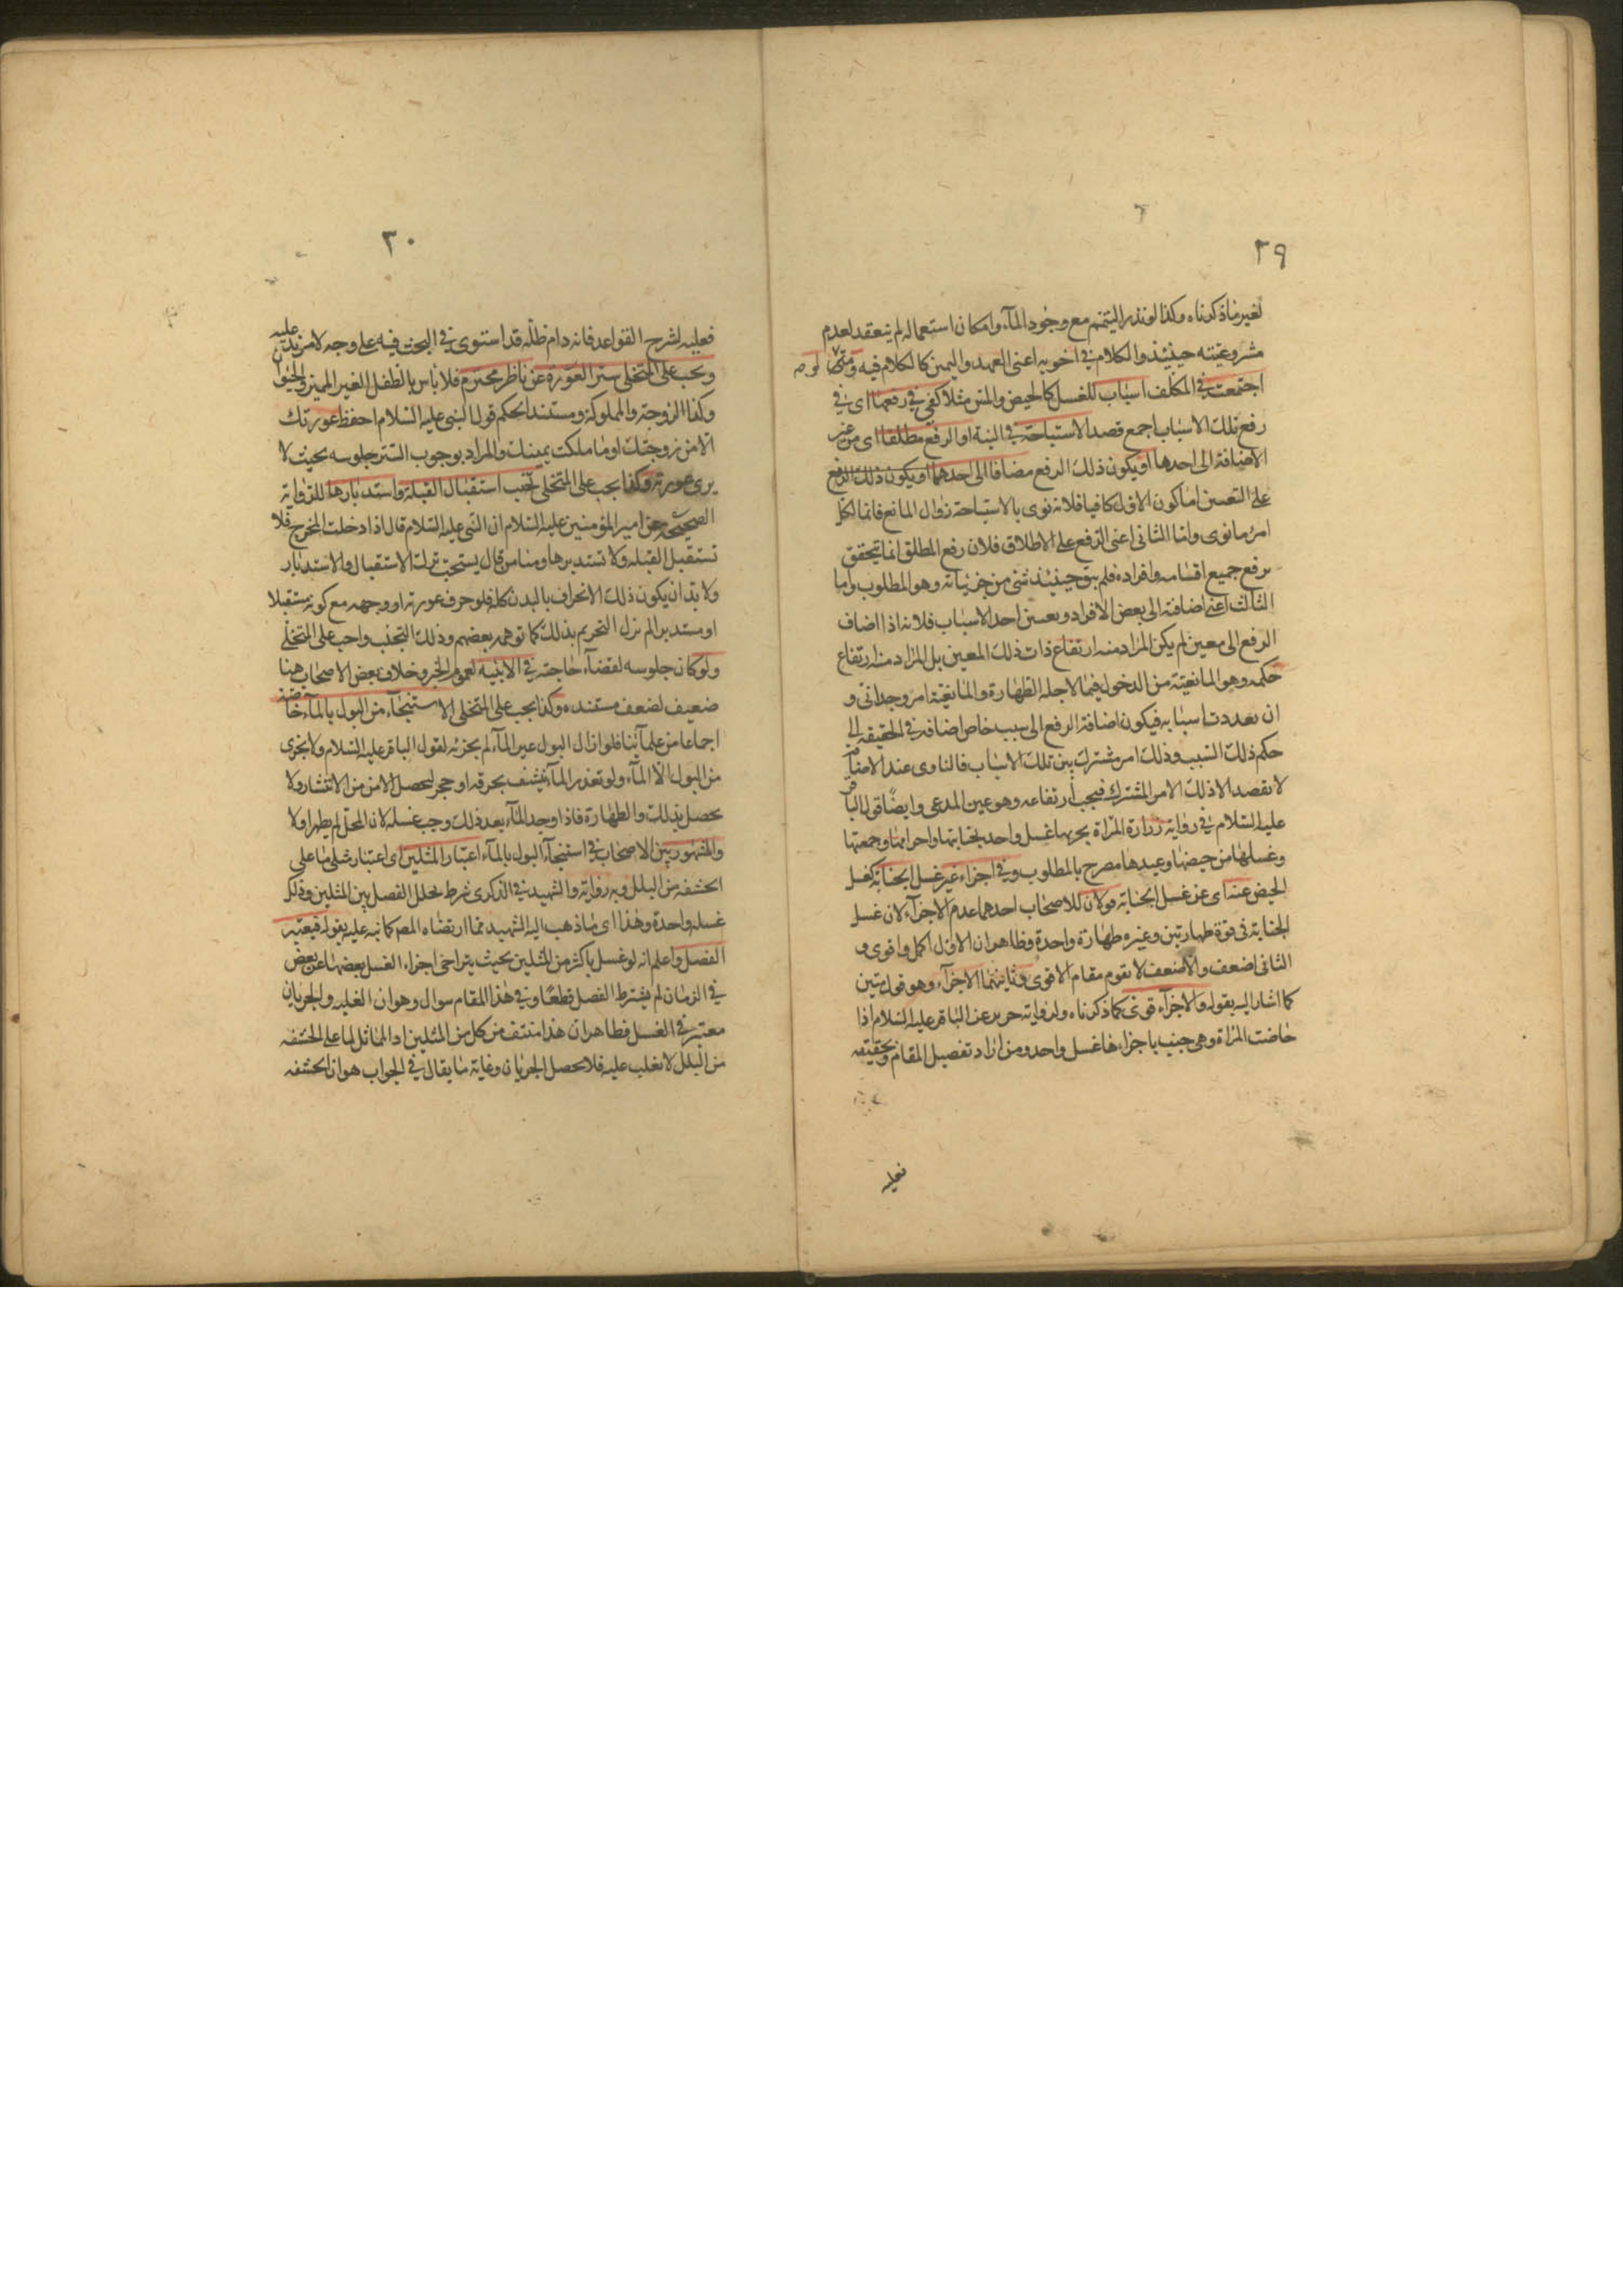 ٢٩
لغير ما ذكرناه وكذا لو نذر التيمم مع وجود المآء وامكان استعماله لم ينعقد لعدم
مشروعيته حينئذ والكلام في اخويه اعنى العهد واليمين كالكلام فيه ومتى
اجتمعت في المكلف اسباب للغسل كالحيض والمس مثلا كفى في رفعها اى في
رفع تلك الاسباب اجمع قصد الاستباحة في النية او الرفع مطلقا اى من غير
الاضافة الى احدها او يكون ذلك الرفع مضافا الى احدهما او يكون ذلك الرفع
على التعيين اما كون الاول كافيا فلانه نوى بالاستباحة زوال المانع فانما لكل
امرئ ما نوى واما الثانى اعنى الرفع على الاطلاق فلان رفع المطلق انما يتحقق
برفع جميع اقسامه وافراده فلم يبق حينئذ شئ من جزئياته وهو المطلوب واما
الثالث اعنى اضافته الى بعض الافراد وبعين احد الاسباب فلانه اذا اضاف
الرفع الى معين لم يكن المراد منه ارتفاع ذات ذلك المعين بل المراد منه ارتفاع
حكمه وهو المانعية من الدخول فيما لاجله الطهارة والمانعية امر وجدانى و
ان تعددت اسبابه فيكون اضافة الرفع الى سبب خاص اضافه في الحقيقه الى
حكم ذلك السبب وذلك امر مشترك بين تلك الاسباب فالناوى عند الاضافة
لا يقصد الا ذلك الامر المشترك فيجب ارتفاعه وهو عين المدعى وايضًا قول الباقر
عليه السلام في رواية زرارة المرأة يجزيها غسل واحد لجنابتها واحرامها وجمعتها
وغسلها من حيضها وعيدها مصرح بالمطلوب وفي اجزاء غير غسل الجنابة كغسل
الحيض عنه اى عن غسل الجنابة قولان للاصحاب احدهما عدم الاجزآء لان غسل
الجنابة فى قوة طهارتين وغيره طهارة واحدة وظاهر ان الاول اكمل واقوى و
الثانى اضعف والاضعف لا يقوم مقام الاقوى وثانيهما الاجزآء وهو قول متين
كما اشار اليه بقوله والاجزآء قوى كما ذكرناه ولرواية حريز عن الباقر عليه السلام اذا
حاضت المرأة وهى جنب باجزاءها غسل واحد ومن اراد تفصيل المقام وتحقيقه
فعليه
٣٠
فعليه لشرح القواعد فانه دام ظلّه قد استوى في البحث فيه على وجه لا مزيد عليه
ويجب على المتخلى ستر العورة عن ناظر محترم فلا باس بالطفل الغير المميز والحيوان
وكذا الزوجة والمملوكة ومستند الحكم قول النبى عليه السلام احفظ عورتك
الّا من زوجتك او ما ملكت يمينك والمراد بوجوب الستر جلوسه بحيث لا
يرى عورته وكذا يجب على المتخلى تجنب استقبال القبلة واستدبارها للرواية
الصحيحه عن امير المؤمنين عليه السلام ان النبى عليه السلام قال اذا دخلت المخرج فلا
تستقبل القبله ولا تستدبرها ومنا من قال يستحب ترك الاستقبال والاستدبار
ولا بد ان يكون ذلك الانحراف بالبدن كله فلو حرف عورته او وجهه مع كونه مستقبلا
او مستدبرا لم نزل التحريم بذلك كما توهمه بعضهم وذلك التجنب واجب على المتخلّى
ولو كان جلوسه لقضآء حاجته في الابنيه لعموم الخبر وخلاف بعض الاصحاب هنا
ضعيف لضعف مستنده وكذا يجب على المتخلى الاستنجآء من البول بالمآء خاصّة
اجماعا من علمآئنا فلو ازال البول عين المآء لم يجزئه لقول الباقر عليه السلام ولا يجزى
من البول الّا المآء ولو تعذر المآء نشف بخرقه او حجر لتحصل الامن من الانتشار ولا
يحصل بذلك والطهارة فاذا وجد المآء بعد ذلك وجب غسله لان المحل لم يطهر اولا
والمشهور بين الاصحاب في استنجآء البول بالمآء اعتبار المثلين اى اعتبار مثلى ما على
الحشفه من البلل وبه رواية والشهيد في الذكرى شرط تخلل الفصل بين المثلين وذلك
غسله واحدة وهذا اى ما ذهب اليه الشهيد مما ارتضاه المصـ كما نبه عليه بقوله فيعتبر
الفصل واعلم انه لو غسل باكثر من المثلين بحيث يتراخى اجزاء الغسل بعضها عن بعض
في الزمان لم يشترط الفصل قطعًا وفي هذا المقام سوال وهو ان الغلبه والجريان
معتبر في الغسل فظاهر ان هذا منتف من كل من المثلين اذ المماثل لما على الحشفه
من البلل لا يغلب عليه فلا يحصل الجريان وغاية ما يقال في الجواب هو ان الحشفه